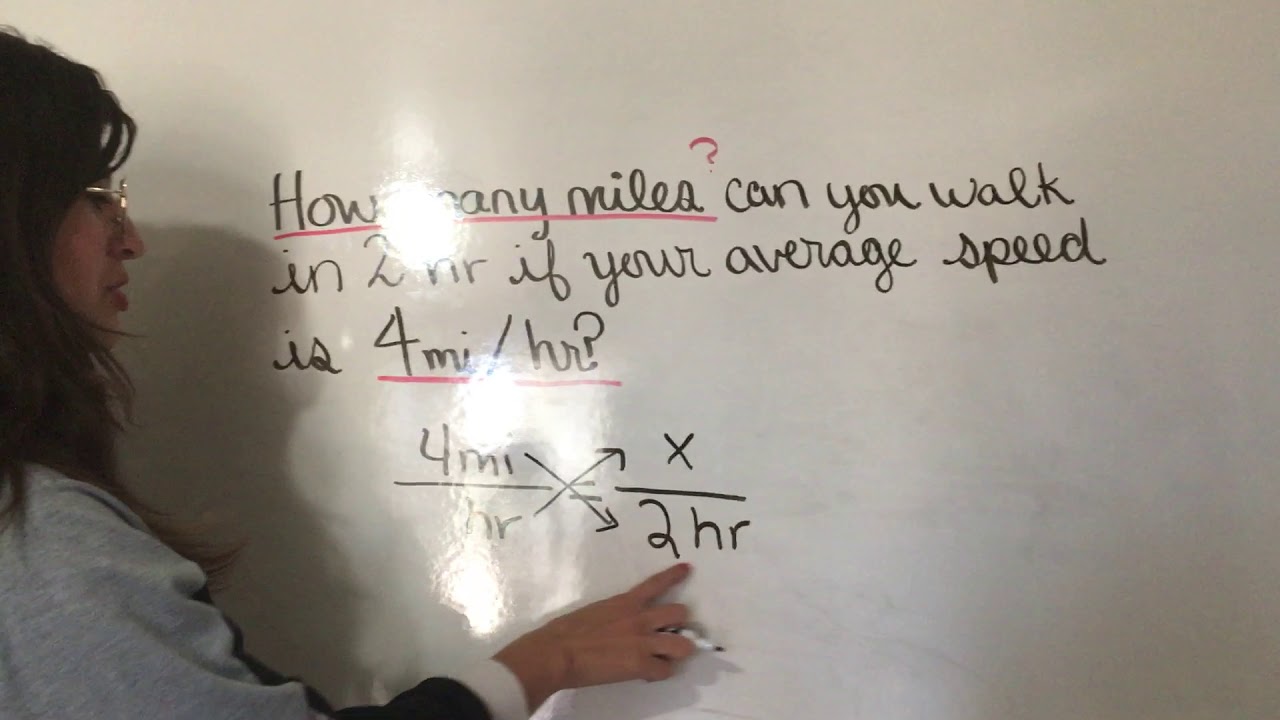 How many miles? can you walk
in 2 hr if your average speed
is 4mi/hr?
4mi = x
hr 2hr